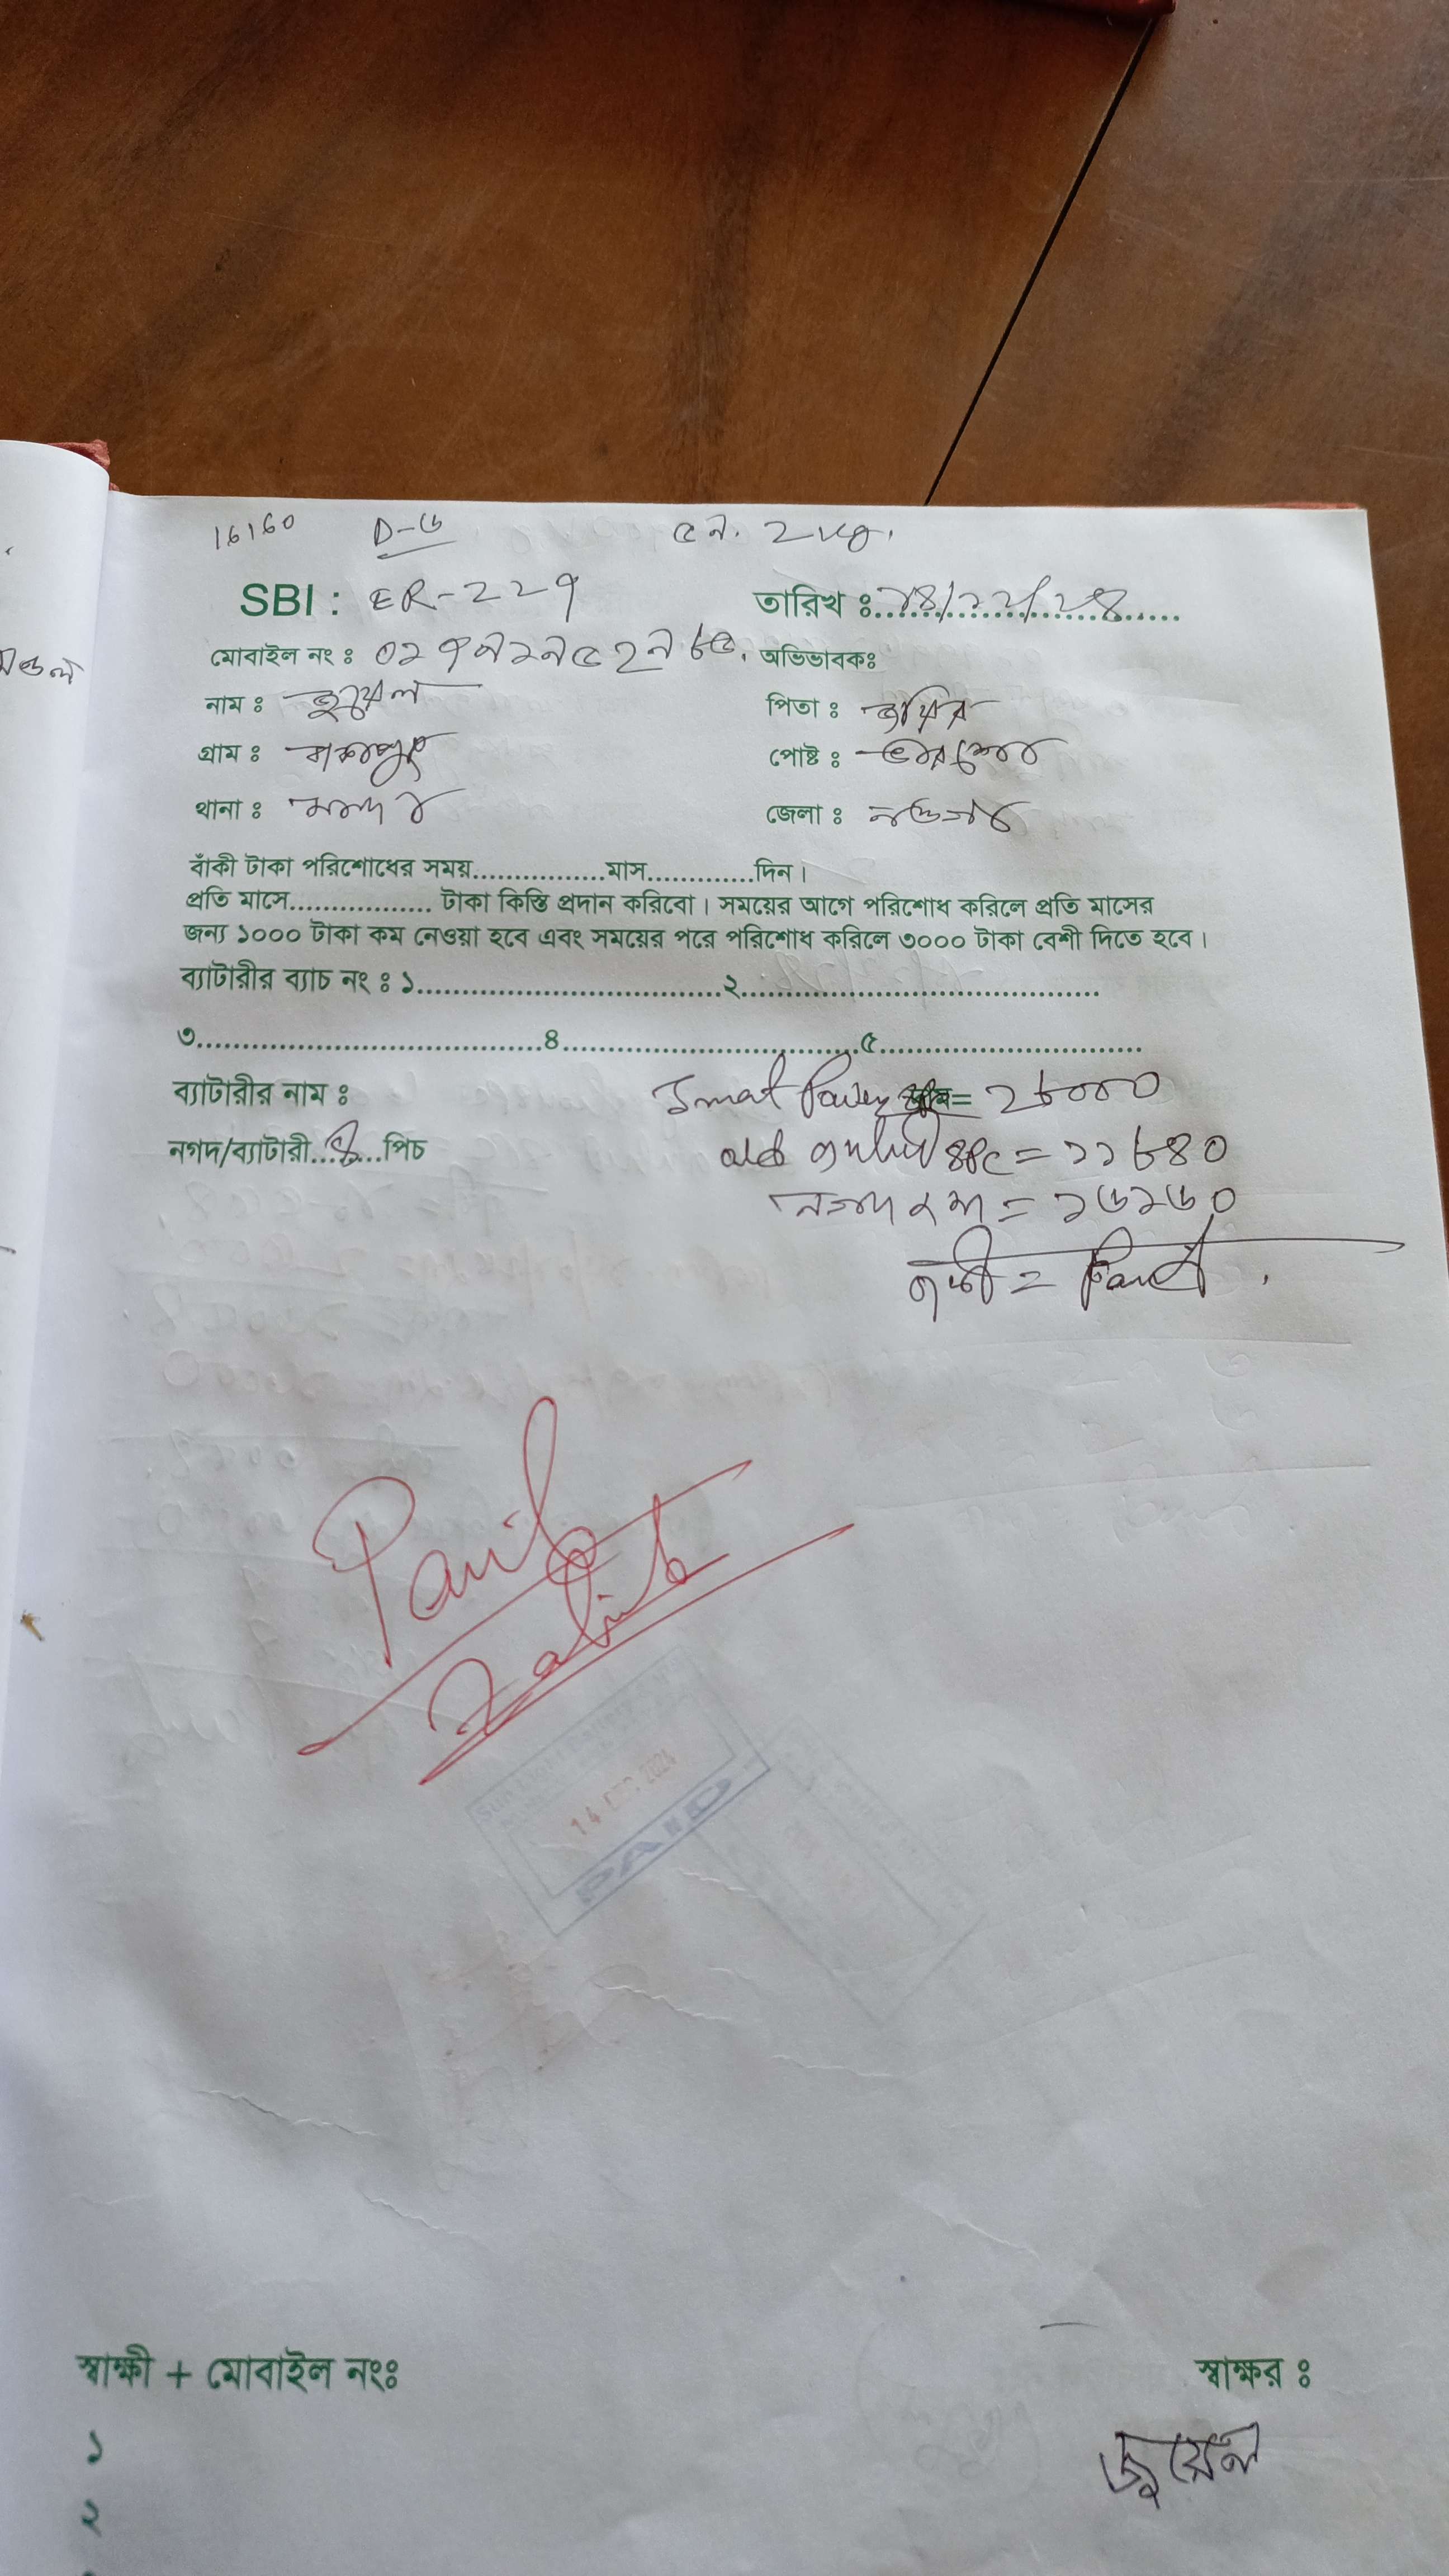 16160 D-৬
SBI : ER-২২৭ তারিখ ঃ ১৪/১২/২৪
মোবাইল নং ঃ ০১৭ অভিভাবকঃ
নাম ঃ জুয়েল পিতা ঃ
গ্রাম ঃ পোষ্ট ঃ
থানা ঃ সদর জেলা ঃ নওগাঁ
বাঁকী টাকা পরিশোধের সময়................মাস.............দিন।
প্রতি মাসে................. টাকা কিস্তি প্রদান করিবো। সময়ের আগে পরিশোধ করিলে প্রতি মাসের
জন্য ১০০০ টাকা কম নেওয়া হবে এবং সময়ের পরে পরিশোধ করিলে ৩০০০ টাকা বেশী দিতে হবে।
ব্যাটারীর ব্যাচ নং ঃ ১..................................২........................................
৩......................................৪.................................৫.............................
ব্যাটারীর নাম ঃ Smart Power = ২৮০০০
নগদ/ব্যাটারী...৪...পিচ old ৪PC = ১১৮৪০
নগদ জমা = ১৬১৬০
বাকী = Paid.
Paid
14 DEC 2024
PAID
স্বাক্ষী + মোবাইল নংঃ স্বাক্ষর ঃ
১ জুয়েল
২